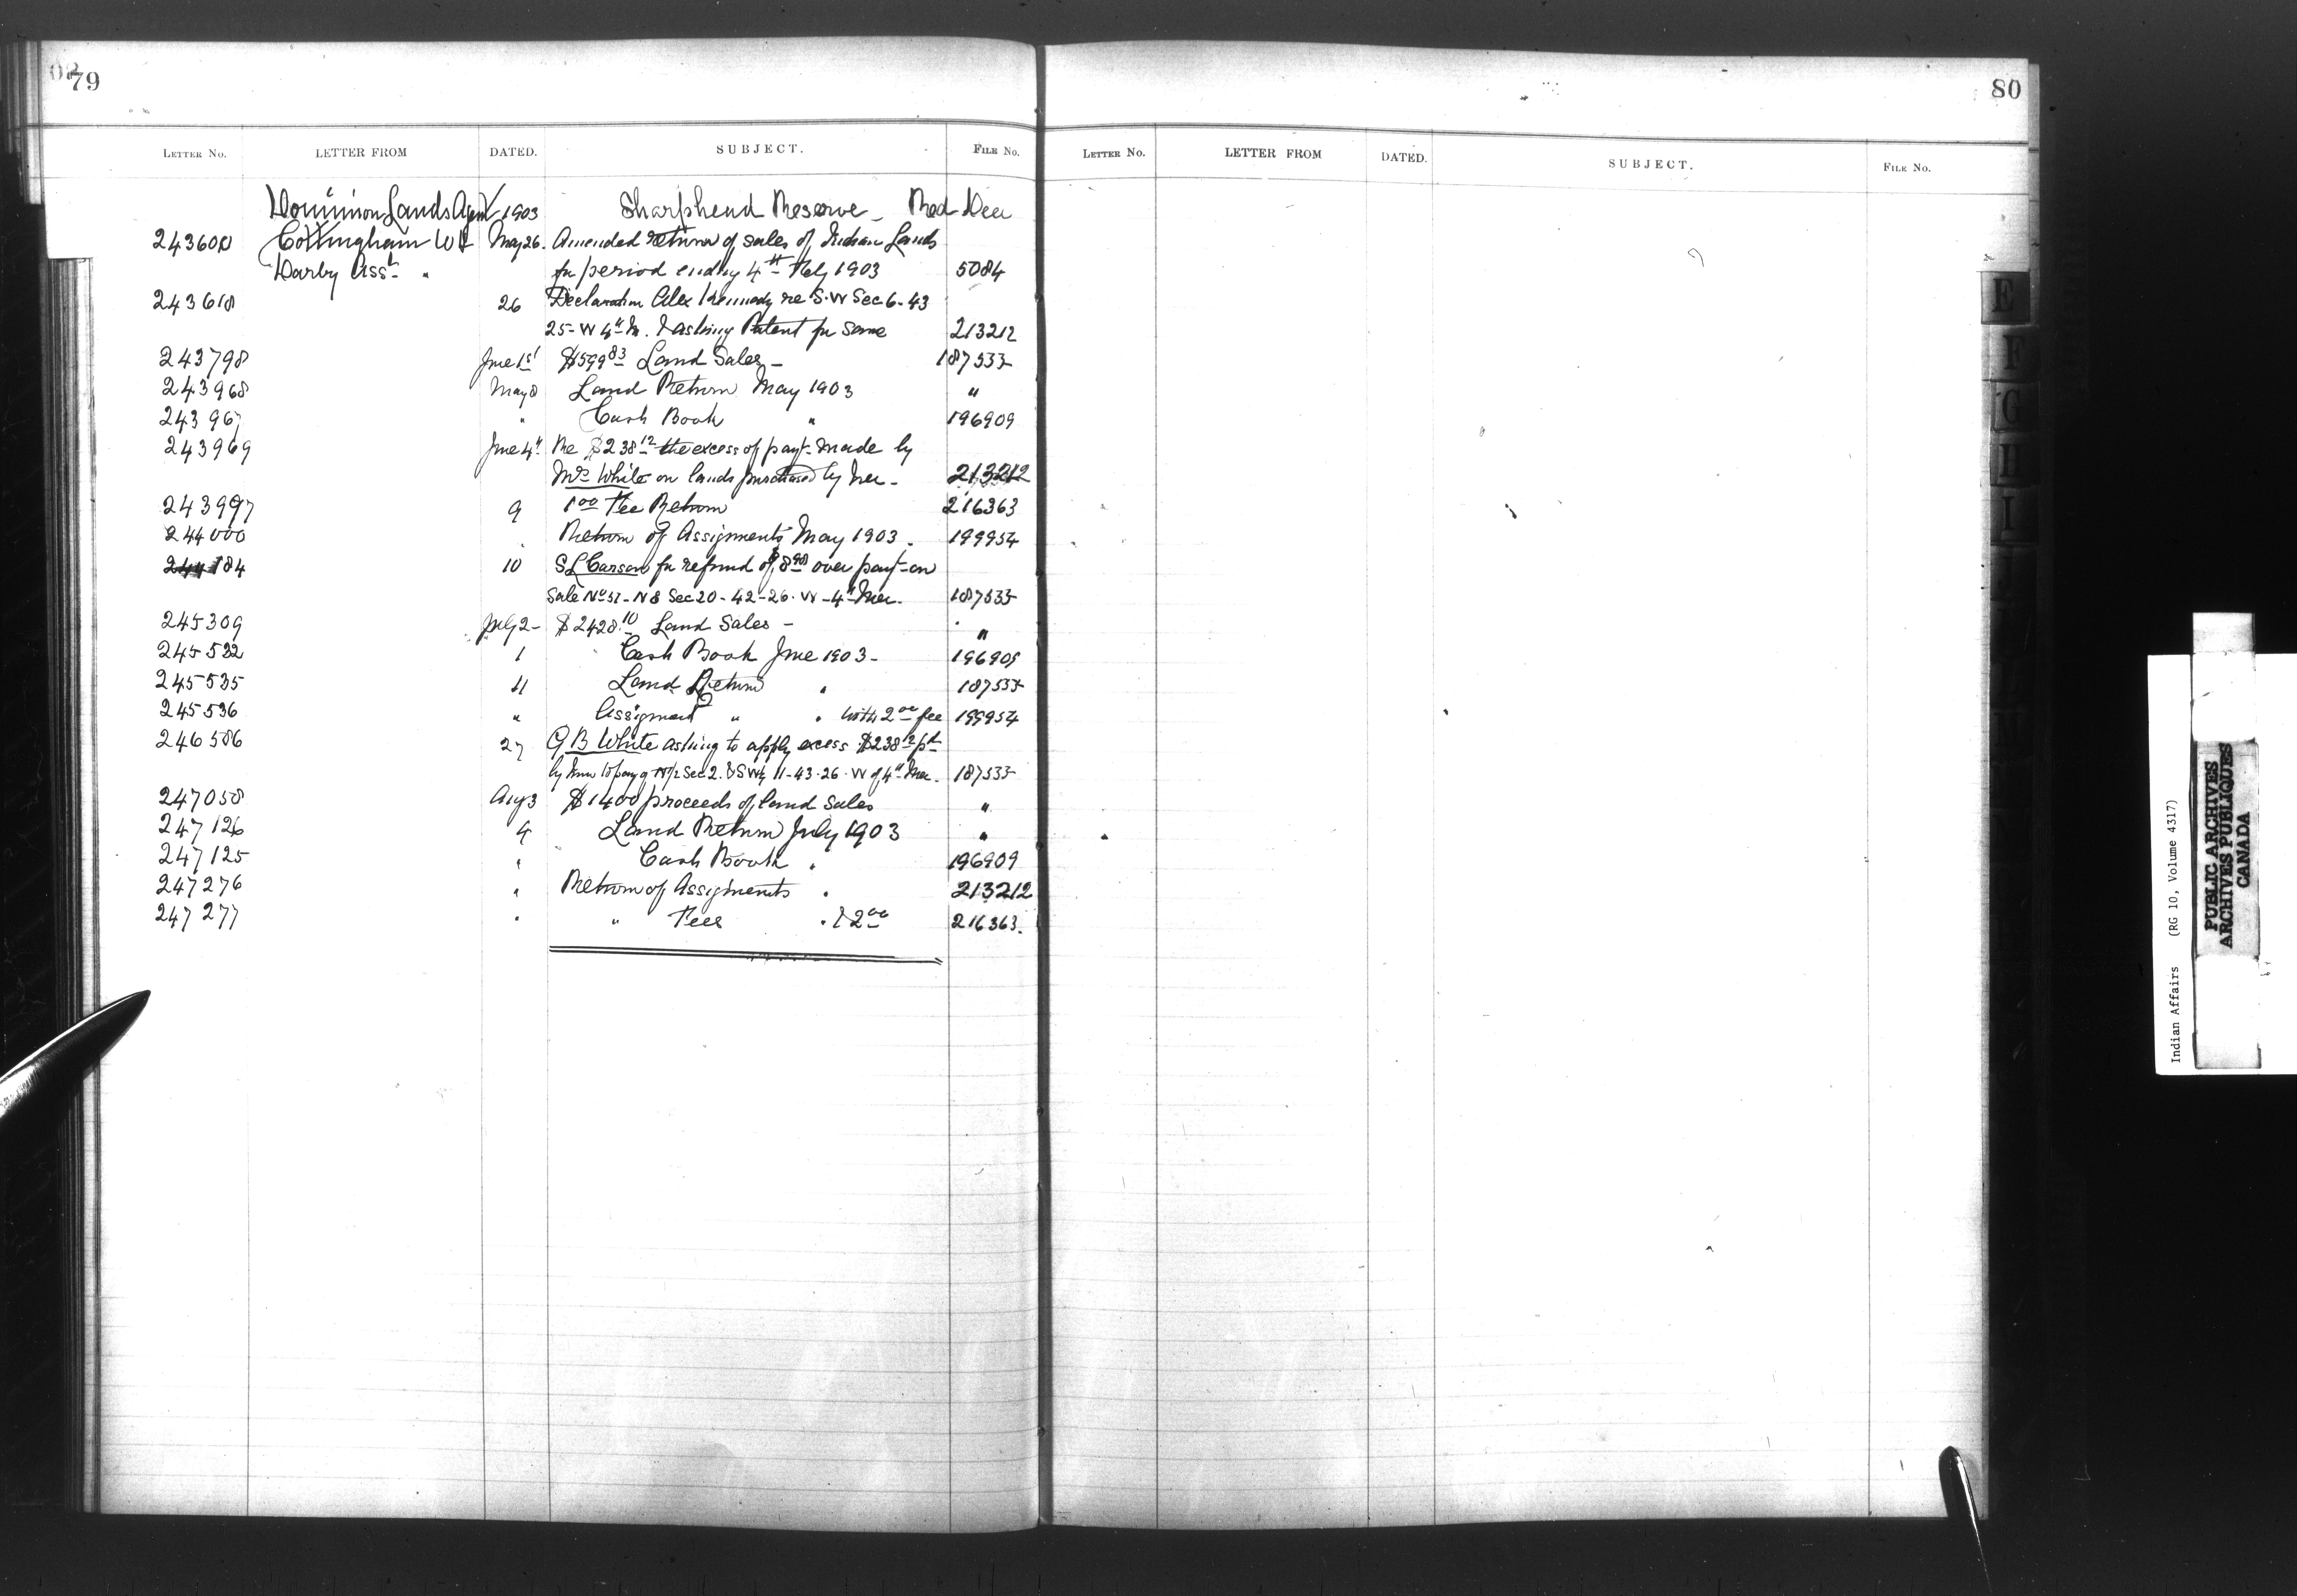 79
LETTER No. LETTER FROM DATED. SUBJECT. FILE No.
Dominion Lands Agent 1903 Sharphead Reserve - Red Deer
243600 Cottingham W H May 26. Amended return of sales of Indian Lands
Darby Asst " for period ending 4th Feby 1903 5084
243618 26 Declaration Alex Kennedy re S.W Sec 6-43
25-W 4th M. & asking Patent for same 213212
243798 June 1st $599 83 Land Sales - 187535
243968 May Land Return May 1903 "
243967 " Cash Book " 196909
243969 June 4th Re $238 12 the excess of payt made by
Mrs White on lands purchased by her - 213212
243997 9 1 00 Fee Return 216363
244000 . Return of Assignments May 1903 . 199954
244184 10 S L Carson for refund of $8 90 over payt on
Sale No 51 - N E Sec 20-42-26. W-4th Mer. 187535
245309 July 2- $2428.10 Land Sales - "
245532 1 Cash Book June 1903 - 196909
245535 4 Land Return " 187535
245536 " Assignment " " with 2 00 fee 199954
246586 27 G B White asking to apply excess $238 12 pd
by him to payg N 1/2 Sec 2. & SW 1/4 11-43-26. W of 4th Mer. 187535
247058 Aug 3 $1400 proceeds of land sales "
247126 4 Land Return July 1903 "
247125 " Cash Book " 196909
247276 " Return of Assignments " 213212
247277 " " Fees " & 2 00 216363.
80
LETTER No. LETTER FROM DATED. SUBJECT. FILE No.
E
F
G
H
I
J
M
Indian Affairs (RG 10, Volume 4317)
PUBLIC ARCHIVES
ARCHIVES PUBLIQUES
CANADA